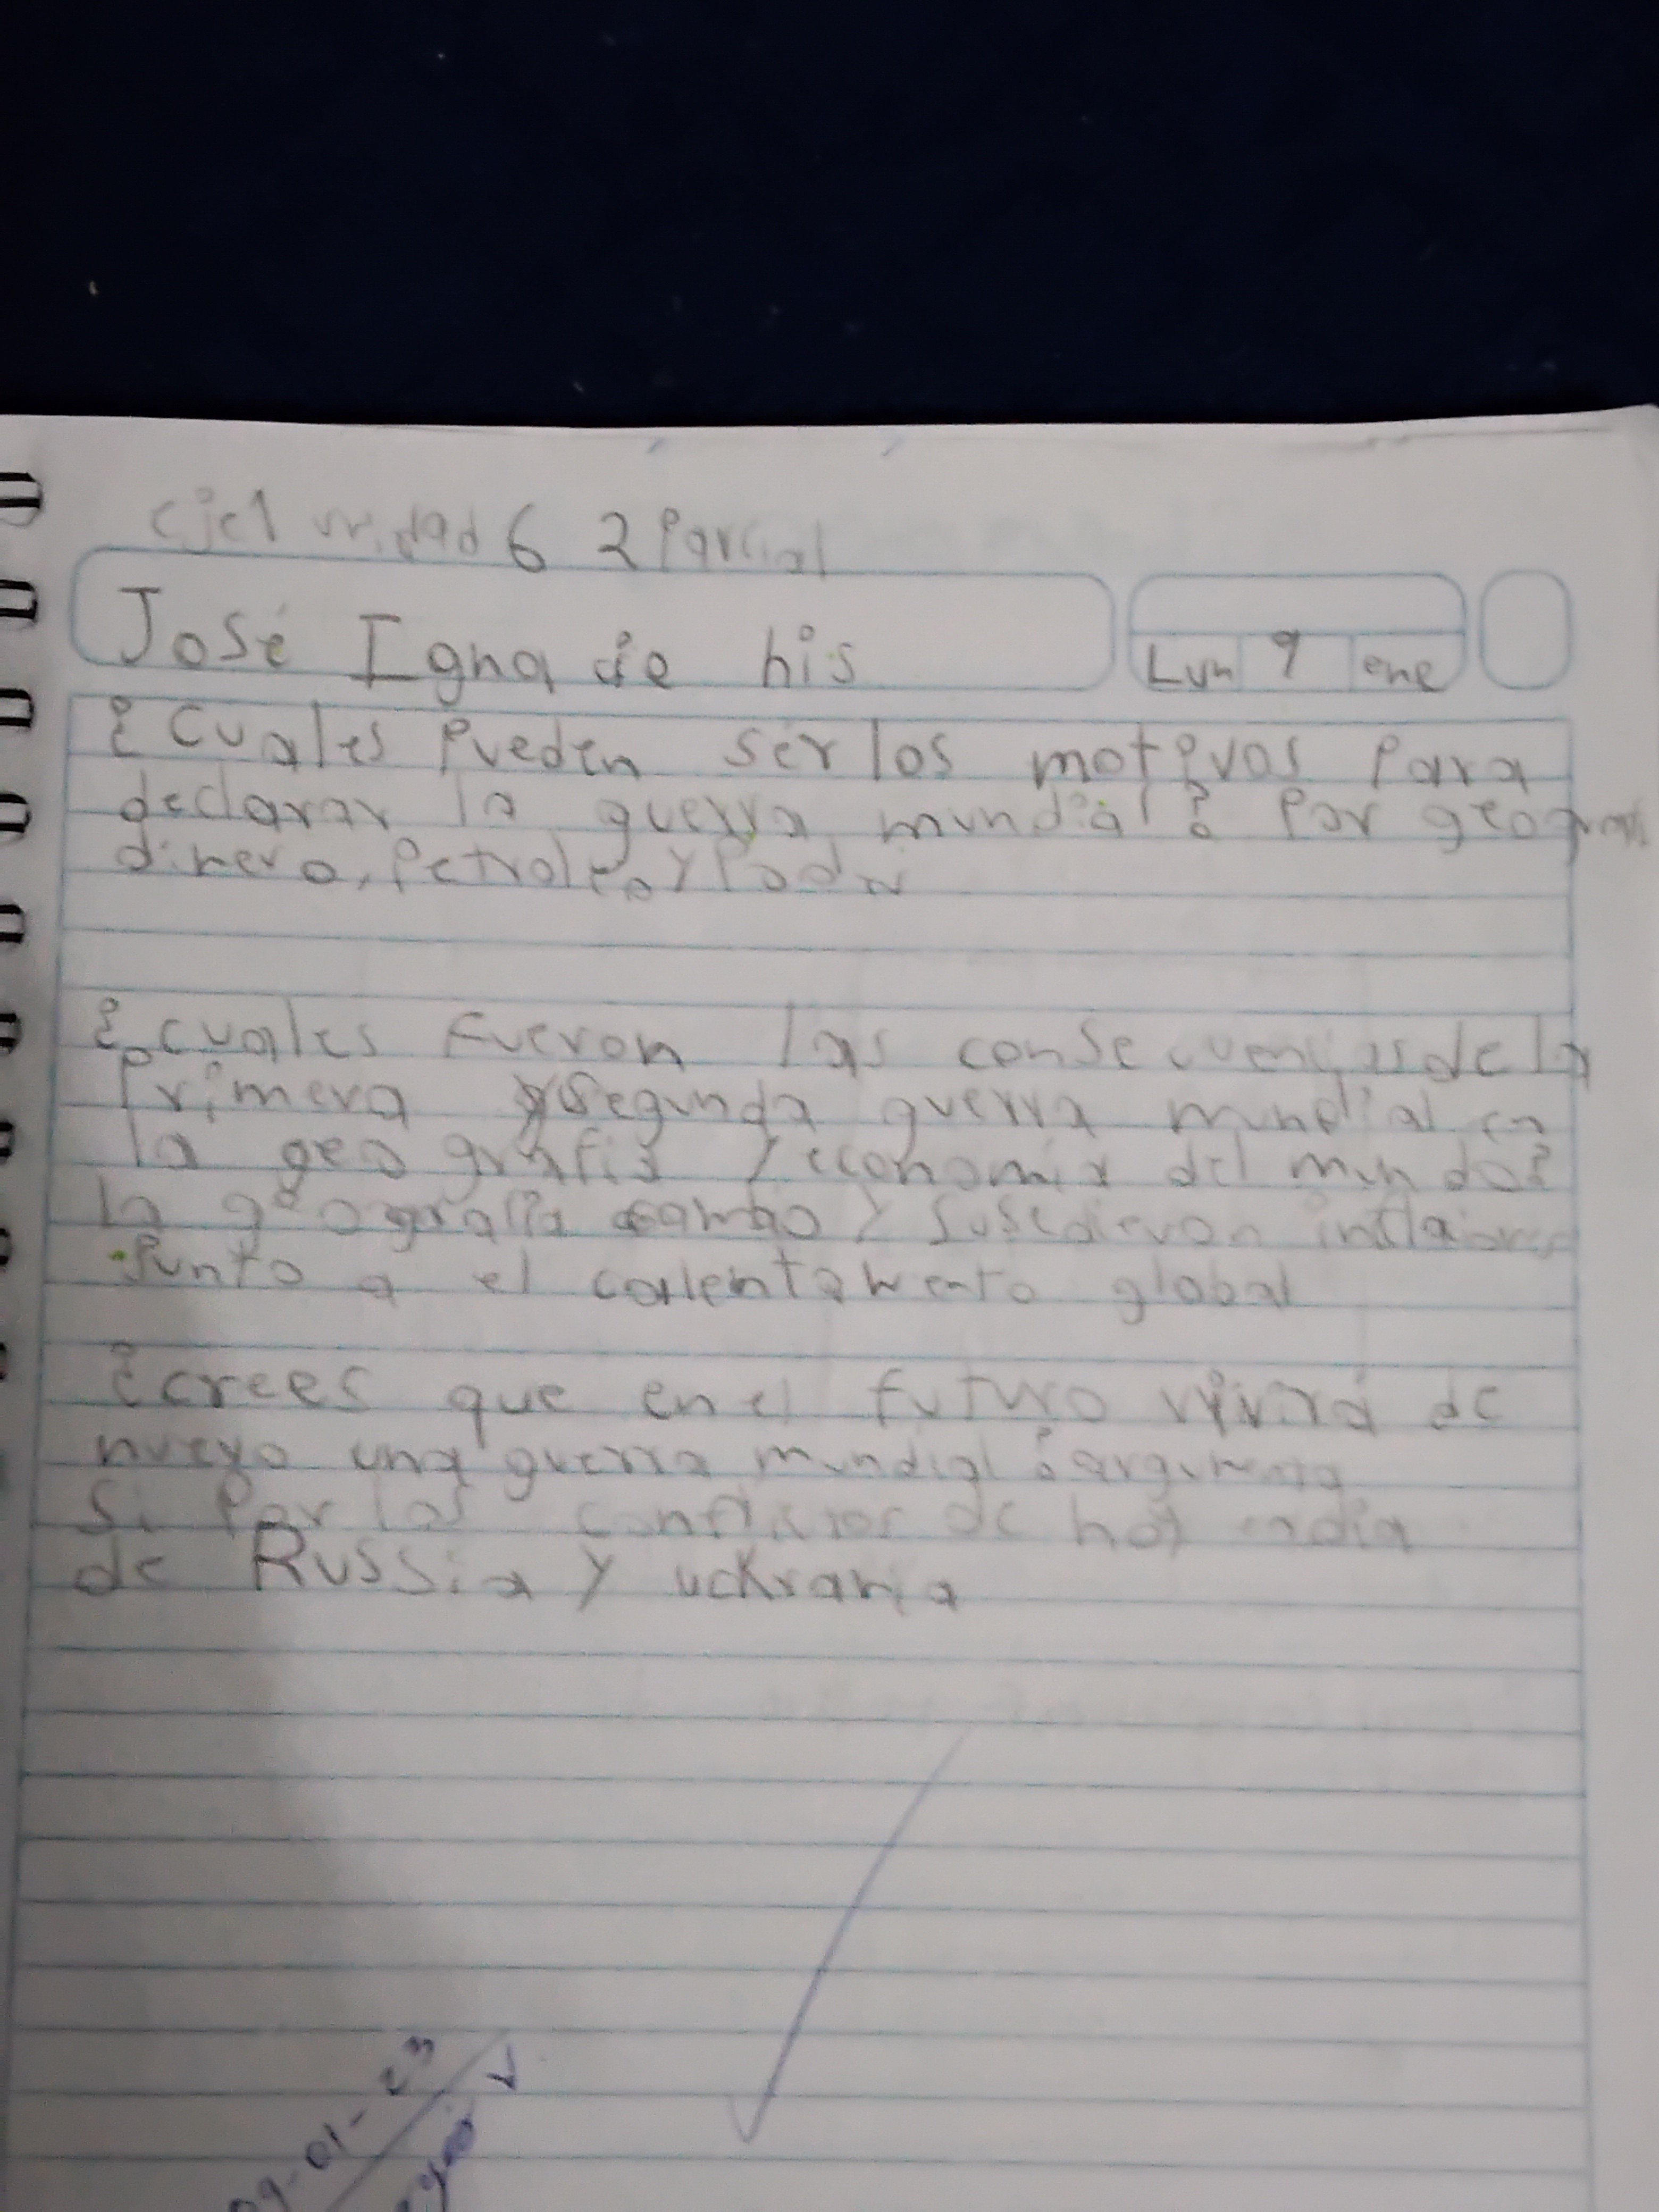 eje1 unidad 6 2 Parcial
José Igna de his
Lun 9 ene
¿Cuales Pueden ser los motivos Para
declarar la guerra mundial? Por geogra
dinero, Petroleo y Poder
¿cuales Fueron las consecuencias de la
Primera y segunda guerra mundial en
la geografia y economia del mundo?
la geografia cambio y susedieron inflaiones
Junto a el calentamento global
¿crees que en el futuro vivirá de
nuevo una guerra mundial? argumenta
Si Por los conflictos de hoy endia
de Russia y uckrania
09-01-23